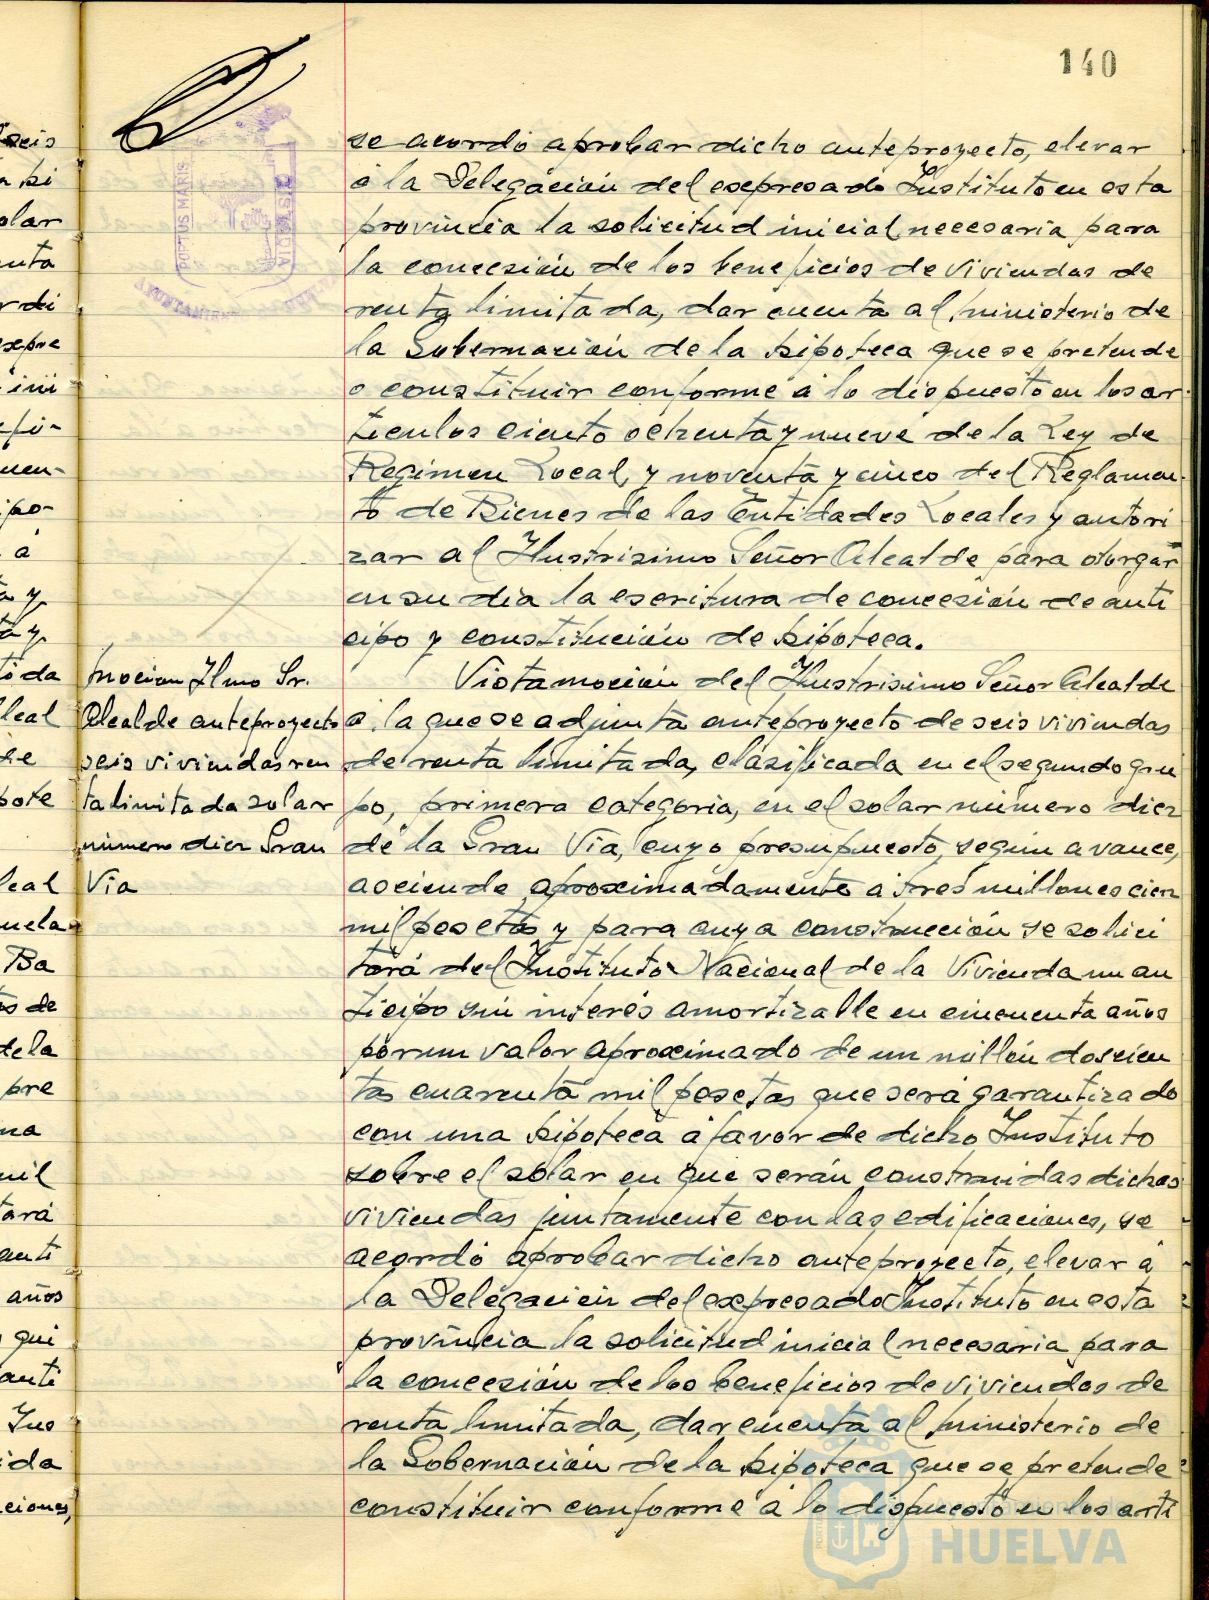 140
se acordó aprobar dicho anteproyecto, elevar
á la Delegación del expresado Instituto en esta
provincia la solicitud inicial necesaria para
la concesión de los beneficios de viviendas de
renta limitada, dar cuenta al Ministerio de
la Gobernación de la hipoteca que se pretende
constituir conforme á lo dispuesto en los ar-
tículos ciento ochenta y nueve de la Ley de
Regimen Local, y noventa y cinco del Reglamen-
to de Bienes de las Entidades Locales y autori
zar al Ilustrisimo Señor Alcalde para otorgar
en su día la escritura de concesión de anti
cipo y constitución de hipoteca.
Moción Ilmo Sr.
Alcalde anteproyecto
seis viviendas ren
ta limitada solar
número diez Gran
Vía
Vista moción del Ilustrisimo Señor Alcalde
á la que se adjunta anteproyecto de seis viviendas
de renta limitada, clasificada en el segundo gru
po, primera categoria, en el solar número diez
de la Gran Vía, cuyo presupuesto, según avance,
asciende aproximadamente á tres millones cien
mil pesetas y para cuya construcción se solici
tará del Instituto Nacional de la Vivienda un an
ticipo sin interés amortizable en cincuenta años
por un valor aproximado de un millón doscien
tas cuarenta mil pesetas que será garantizado
con una hipoteca á favor de dicho Instituto
sobre el solar en que serán construidas dichas
viviendas juntamente con las edificaciones, se
acordó aprobar dicho anteproyecto, elevar á
la Delegación del expresado Instituto en esta
provincia la solicitud inicial necesaria para
la concesión de los beneficios de viviendas de
renta limitada, dar cuenta al Ministerio de
la Gobernación de la hipoteca que se pretende
constituir conforme á lo dispuesto en los arti
PORTUS MARIS
CUSTODIA
AYUNTAMIENTO
HUELVA